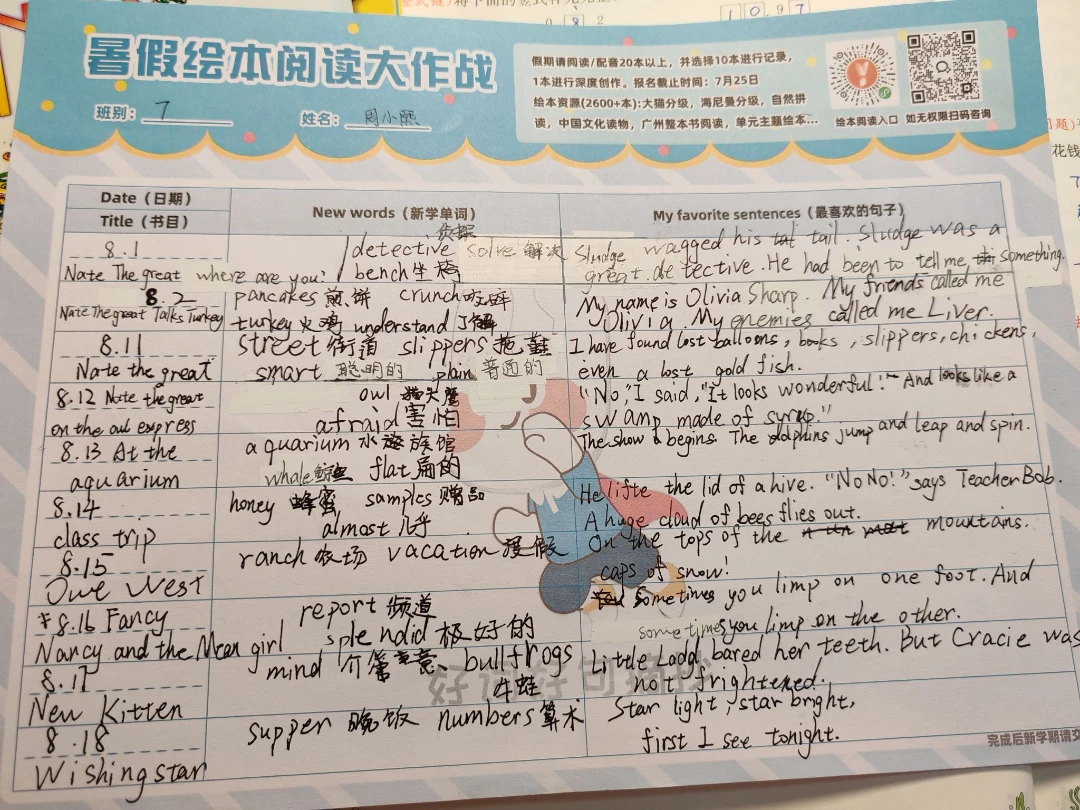 暑假绘本阅读大作战
假期请阅读/配音20本以上，并选择10本进行记录，
1本进行深度创作。报名截止时间：7月25日
绘本资源(2600+本):大猫分级，海尼曼分级，自然拼
读，中国文化读物，广州整本书阅读，单元主题绘本...
绘本阅读入口 如无权限扫码咨询
班别： 7 姓名： 周小熙
Date（日期）
Title（书目）
New words（新学单词）
My favorite sentences（最喜欢的句子）
8.1
Nate The great where are you?
侦探
detective solve 解决
bench 坐椅
Sludge wagged his tail. Sludge was a
great detective. He had been to tell me something.
8.2
Nate The great Talks Turkey
pancakes 煎饼 crunch 咬碎
turkey 火鸡 understand 了解
My name is Olivia Sharp. My friends called me
Olivia. My enemies called me Liver.
8.11
Nate the great
street 街道 slippers 拖鞋
smart 聪明的 plain 普通的
I have found lost balloons, books, slippers, chickens,
even a lost gold fish.
8.12 Nate the great
on the owl express
owl 猫头鹰
afraid 害怕
"No," I said, "It looks wonderful." And looks like a
swamp made of syrup."
8.13 At the
aquarium
aquarium 水族馆
whale 鲸鱼 flat 扁的
The show begins. The dolphins jump and leap and spin.
8.14
class trip
honey 蜂蜜 samples 赠品
almost 几乎
He lifte the lid of a hive. "No No!" says Teacher Bob.
A huge cloud of bees flies out.
8.15
Owe West
ranch 农场 vacation 度假
On the tops of the mountains.
caps of snow!
8.16 Fancy
Nancy and the Mean girl
report 频道
splendid 极好的
sometimes you limp on one foot. And
sometimes you limp on the other.
8.17
New Kitten
mind 介意、bullfrogs
牛蛙
Little Ladd bared her teeth. But Cracie was
not frightened.
8.18
Wishing star
supper 晚饭 numbers 算术
Star light, star bright,
first I see tonight.
好词好句摘抄
完成后新学期请交